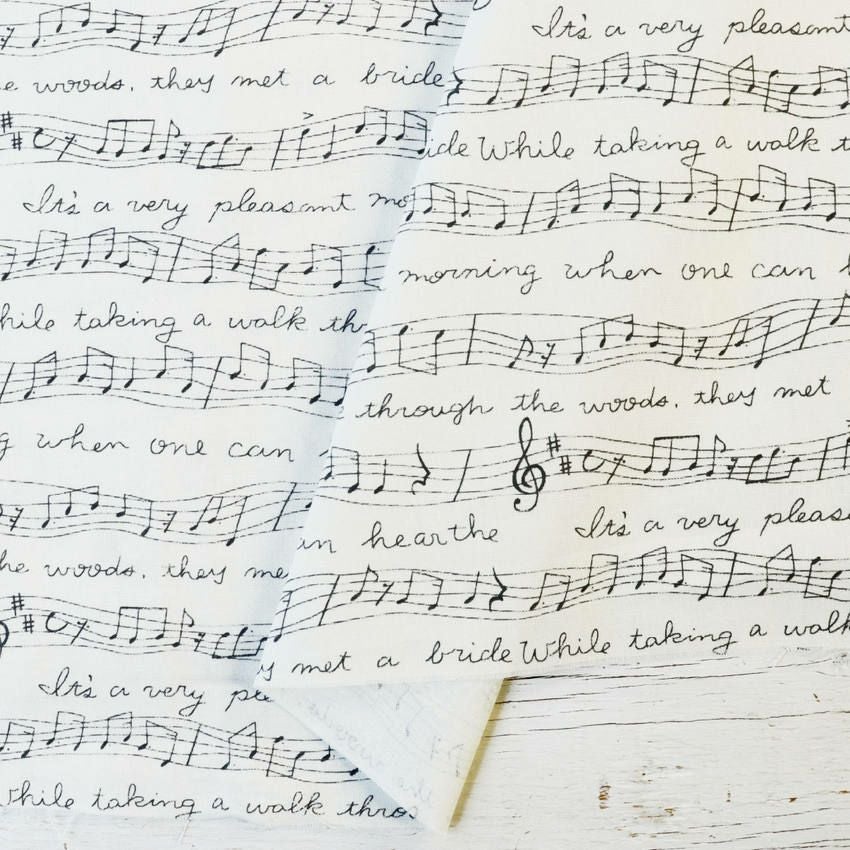 e woods. they met a bride
It's a very pleasant mo
hile taking a walk th
g when one can
he woods. they me
It's a very ple
hile taking a walk thro
It's a very pleasant
ide While taking a walk t
morning when one can
through the woods. they met
an hearthe It's a very pleas
y met a bride While taking a walk